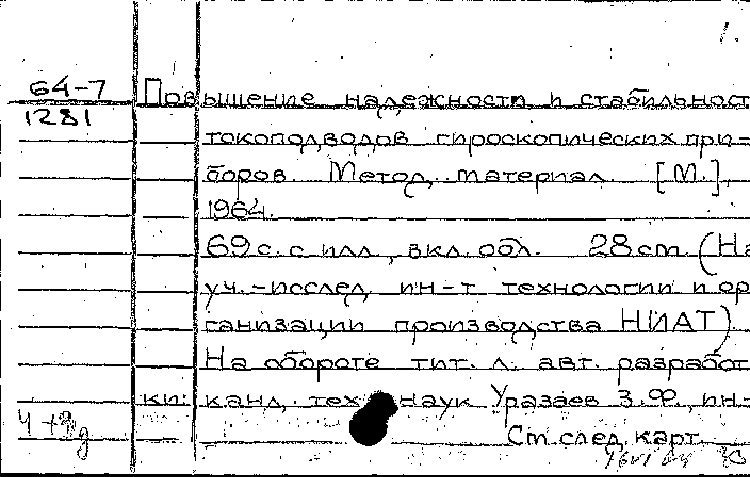 1.
64-7
1281
Повышение надежности и стабильност
токоподводов гироскопических при-
боров. Метод. материал. [М.],
1964.
69 с. с илл., вкл. обл. 28 cm. (На
уч.-исслед. ин-т технологии и ор
ганизации производства НИАТ)
На обороте тит. л. авт. разработ
ки: канд. тех наук Уразаев З.Ф., ин-
См след. карт.